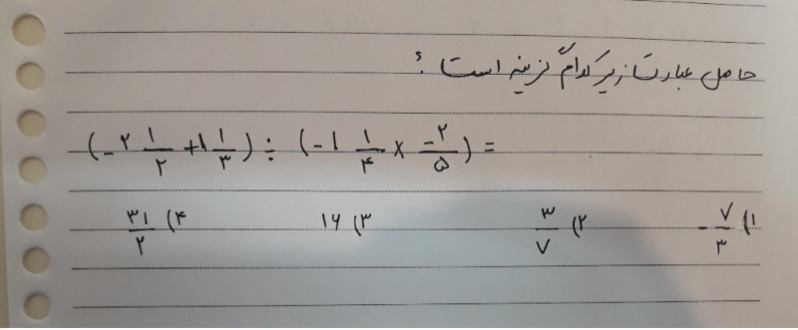 حاصل عبارت زیر کدام گزینه است؟
(-۲ ۱/۲ + ۱ ۱/۳) ÷ (-۱ ۱/۴ × -۲/۵) =
۱) -۷/۳ ۲) ۳/۷ ۳) ۱۶ ۴) ۳۱/۲